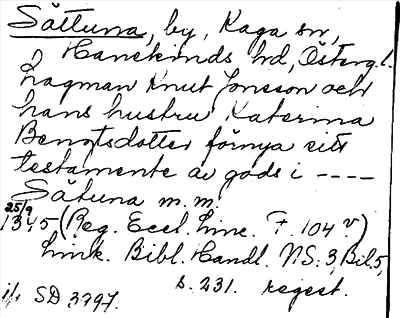 Sättuna, by, Kaga sn,
Hanekinds hd, Österg.l.
Lagman Knut Jonsson och
hans hustru Katerina
Bengtsdotter förnya sitt
testamente av gods i ----
Sätuna m.m.
25/9
1345 (Reg. Eccl. Linc. F. 104 v)
Link. Bibl. Handl. NS: 3, Bil. 5,
s. 231. regest.
SD 3797.